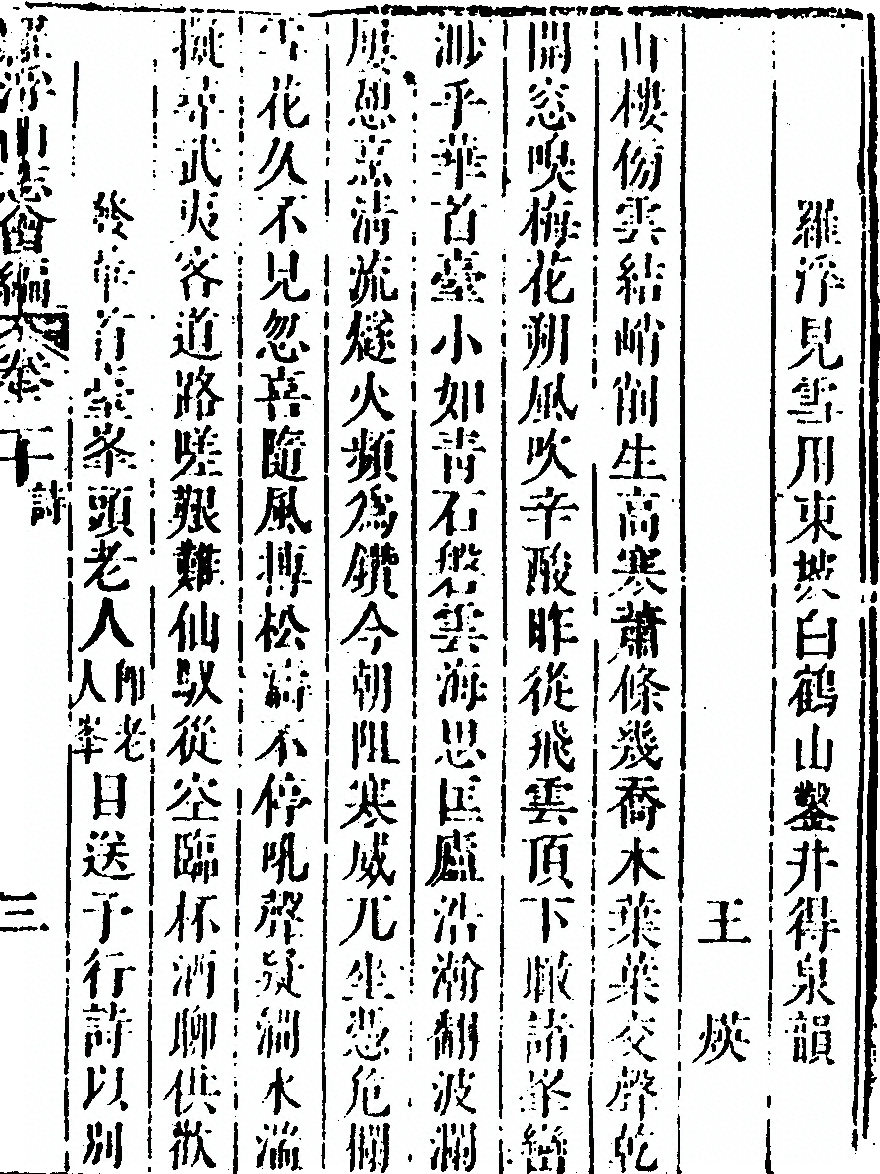 羅浮見雪用東坡白鶴山鑿井得泉韻
王煐
山樓傍雲結峭削生高寒蕭條幾喬木葉葉交聲乾
開窓嗅梅花朔風吹辛酸昨從飛雲頂下瞰諸峯巒
渺乎華首臺小如青石磐雲海思匡廬浩瀚翻波瀾
屐憩京清流燧火頻為鑽今朝阻寒威兀坐憑危欄
雪花久不見忽喜隨風摶松濤不停吼聲疑澗水湍
擬尋武夷客道路嗟艱難仙馭從空臨杯酒聊供歡
發華首臺峯頭老人即老人峯日送予行詩以別
羅浮山志會編 卷 詩 三